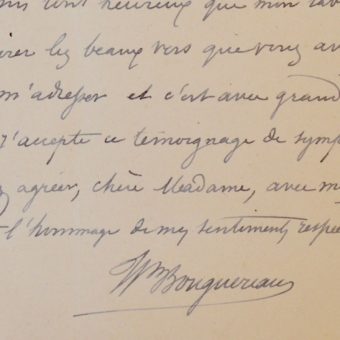 suis tout heureux que mon tab
irer les beaux vers que vous av
m'adresser et c'est avec grand
j'accepte ce témoignage de symp
agréer, chère Madame, avec m
l'hommage de mes sentiments respec
Wm Bouguereau